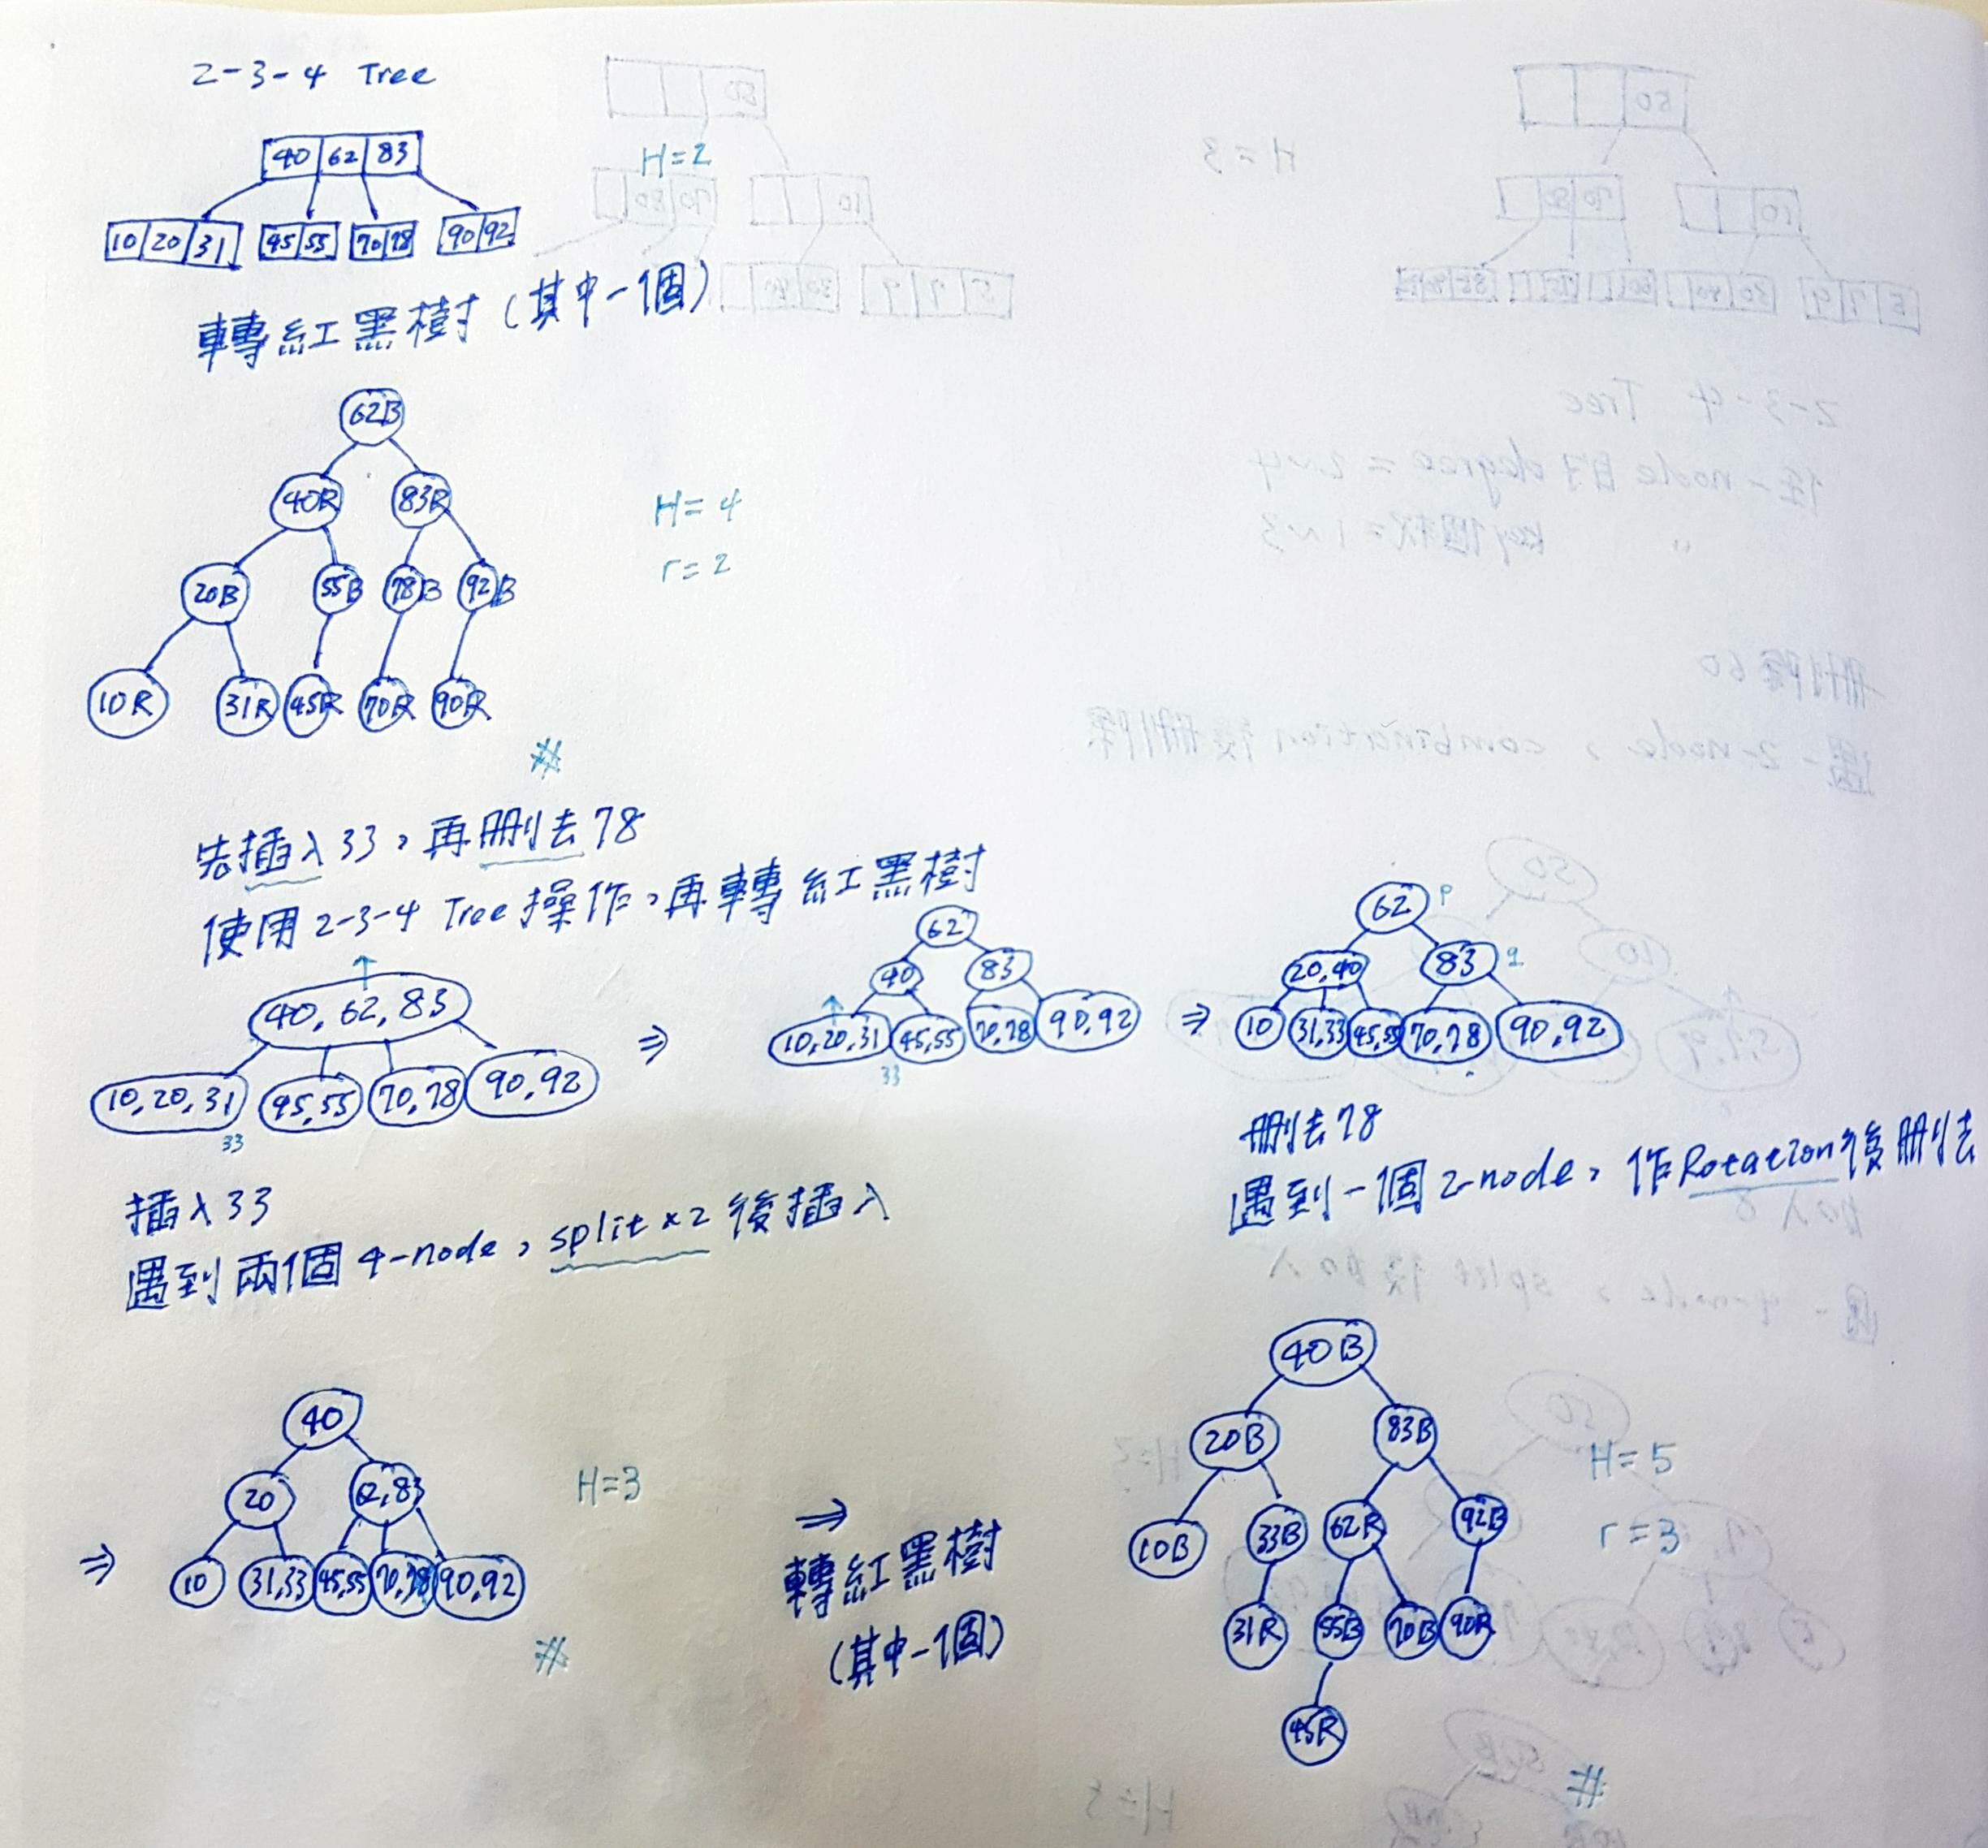 2-3-4 Tree
40 62 83
H=2
10 20 31 45 55 70 78 90 92
轉紅黑樹(其中一個)
62B
40R 83R
H=4
r=2
20B 55B 78B 92B
10R 31R 45R 70R 90R
#
先插入33,再刪去78
使用2-3-4 Tree操作,再轉紅黑樹
40, 62, 83
10, 20, 31 45, 55 70, 78 90, 92
33
⇒
62
40 83
10, 20, 31 45, 55 70, 78 90, 92
33
⇒
62 P
20, 40 83 q
10 31, 33 45, 55 70, 78 90, 92
插入33
遇到兩個4-node,split×2後插入
刪去78
遇到一個2-node,作Rotation後刪去
⇒
40
20 62, 83
H=3
10 31, 33 45, 55 70, 78 90, 92
#
⇒
轉紅黑樹
(其中一個)
40B
20B 83B
H=5
10B 33B 62R 92B
r=3
31R 55B 70B 90R
45R
#